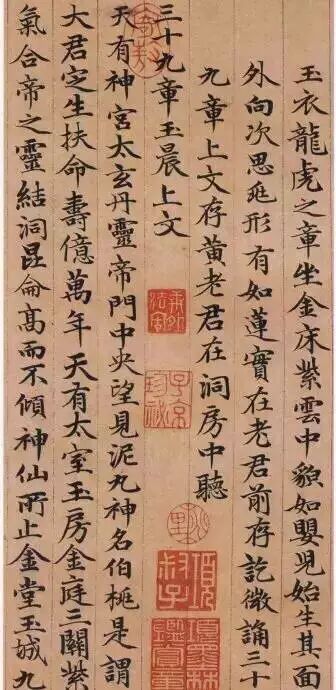 玉衣龍虎之章坐金床紫雲中貌如嬰兒始生其面
外向次思形有如蓮實在老君前存訖微誦三十
九章上文存黃老君在洞房中聽
三十九章玉晨上文
天有神宮太玄丹靈帝門中央望見泥丸神名伯桃是謂
大君定生扶命壽億萬年天有太室玉房金庭三關紫
氣合帝之靈結洞昆侖高而不傾神仙所止金堂玉城九
子京珍祕
項叔子